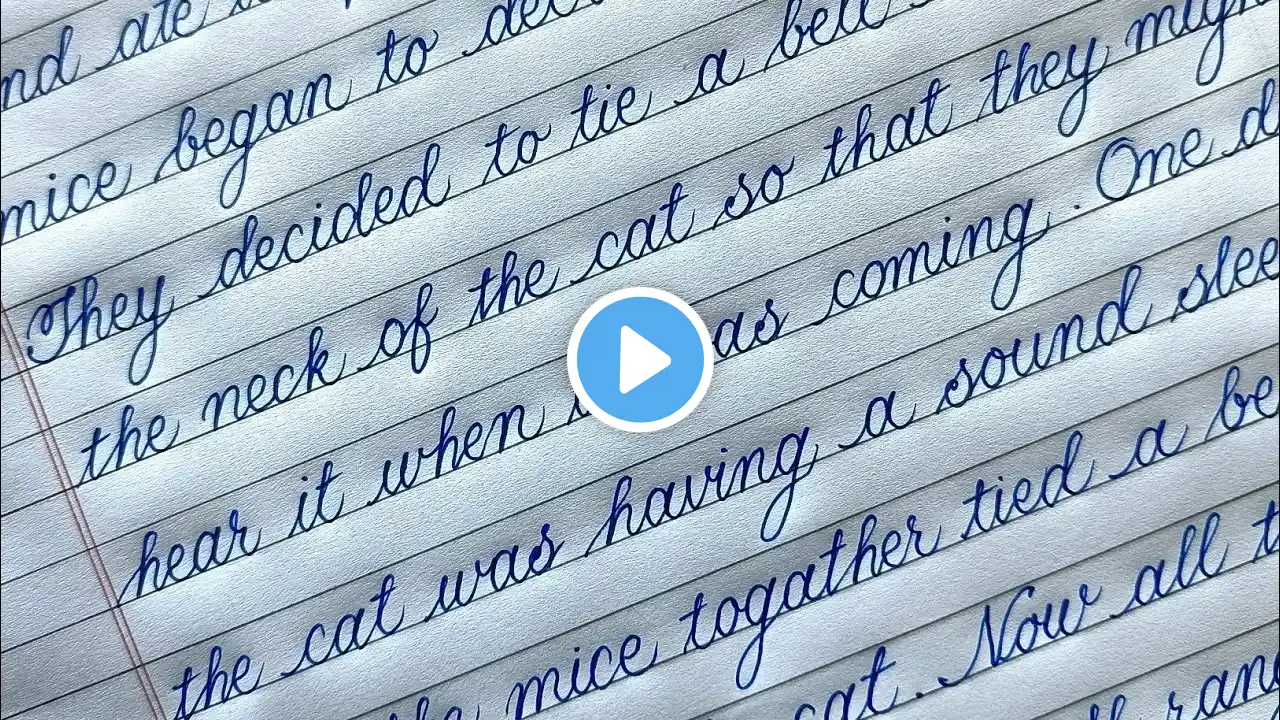 nd ate
mice began to
They decided to tie a bell
the neck of the cat so that they migh
hear it when as coming. One d
the cat was having a sound slee
mice togather tied a be
cat. Now all t